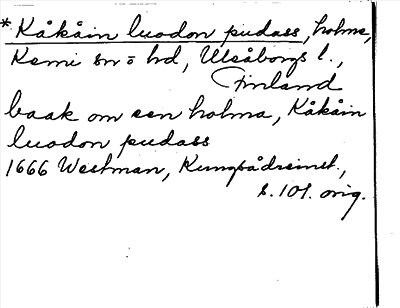 * Kåkåin luodon pudass, holme,
Kemi sn o hd, Uleåborgs l.,
Finland
baak om een holma, Kåkåin
luodon pudass
1666 Westman, Kungsådreinst.,
s. 101. orig.